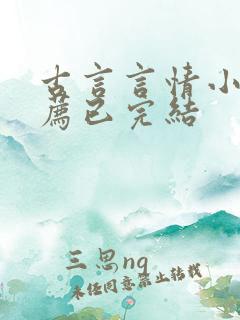 古言言情小
薦已完結
三思ng
未经同意禁止转载